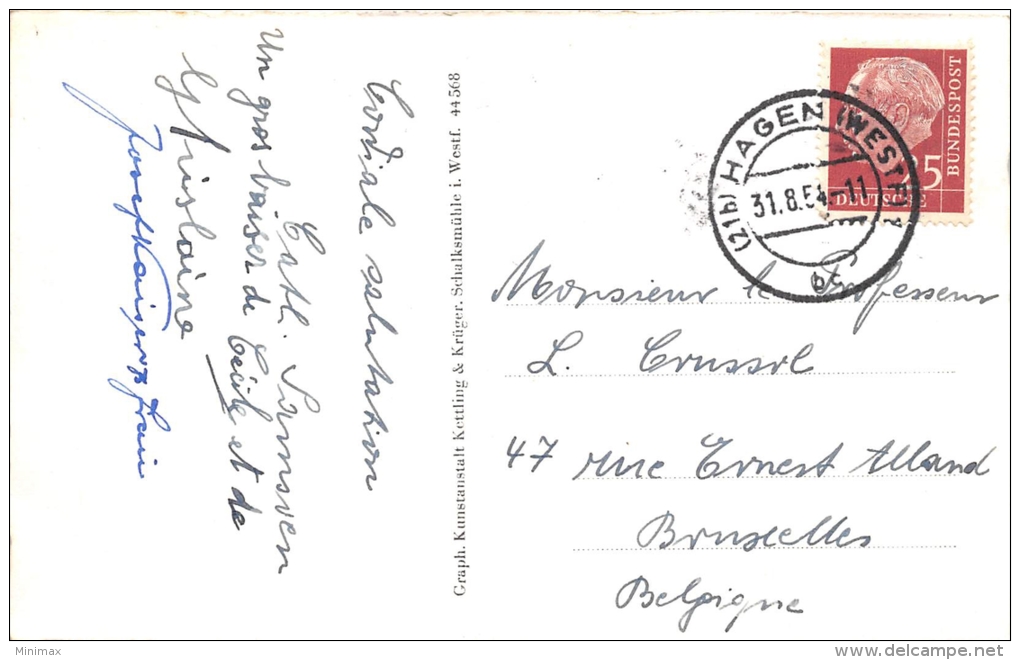 Cordiale salutation
Cath. Samsoen
Un gros baiser de Cécile et de
Ghislaine
Josef Kaiser
Frau
Graph. Kunstanstalt Kettling & Krüger. Schalksmühle i. Westf. 44568
(21b) HAGEN (WESTF) 1
31.8.54.-11
25
DEUTSCHE
BUNDESPOST
Monsieur le Professeur
L. Crussol
47 rue Ernest Alland
Bruxelles
Belgique
Minimax
www.delcampe.net